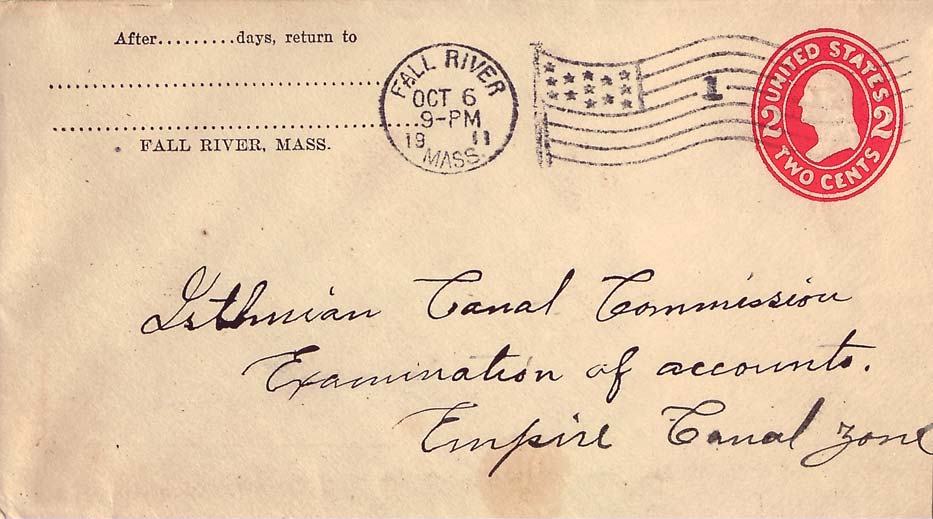 After.........days, return to
FALL RIVER, MASS.
FALL RIVER
OCT 6
9-PM
19 11
MASS.
1
UNITED STATES
2 2
TWO CENTS
Isthmian Canal Commission
Examination of accounts.
Empire Canal zone